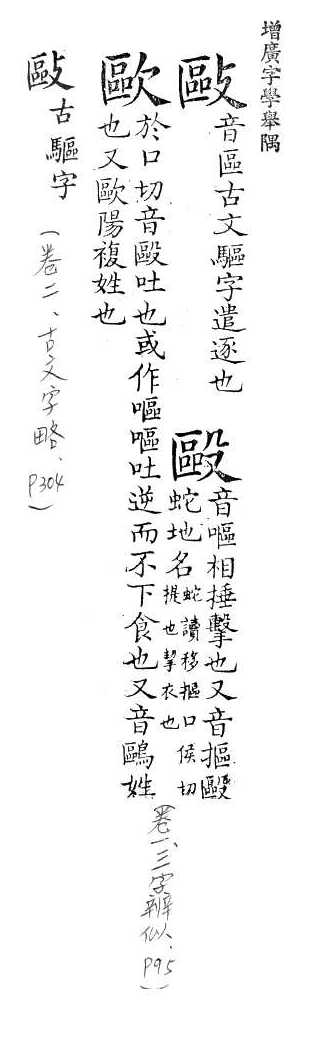 增廣字學舉隅
敺音區古文驅字遣逐也
毆音嘔相捶擊也又音摳毆
蛇地名蛇讀移摳口侯切
提也挈衣也
歐於口切音毆吐也或作嘔嘔吐逆而不下食也又音鷗姓
也又歐陽複姓也
(卷一、三字辨似、P95)
敺古驅字
(卷二、古文字略、P304)